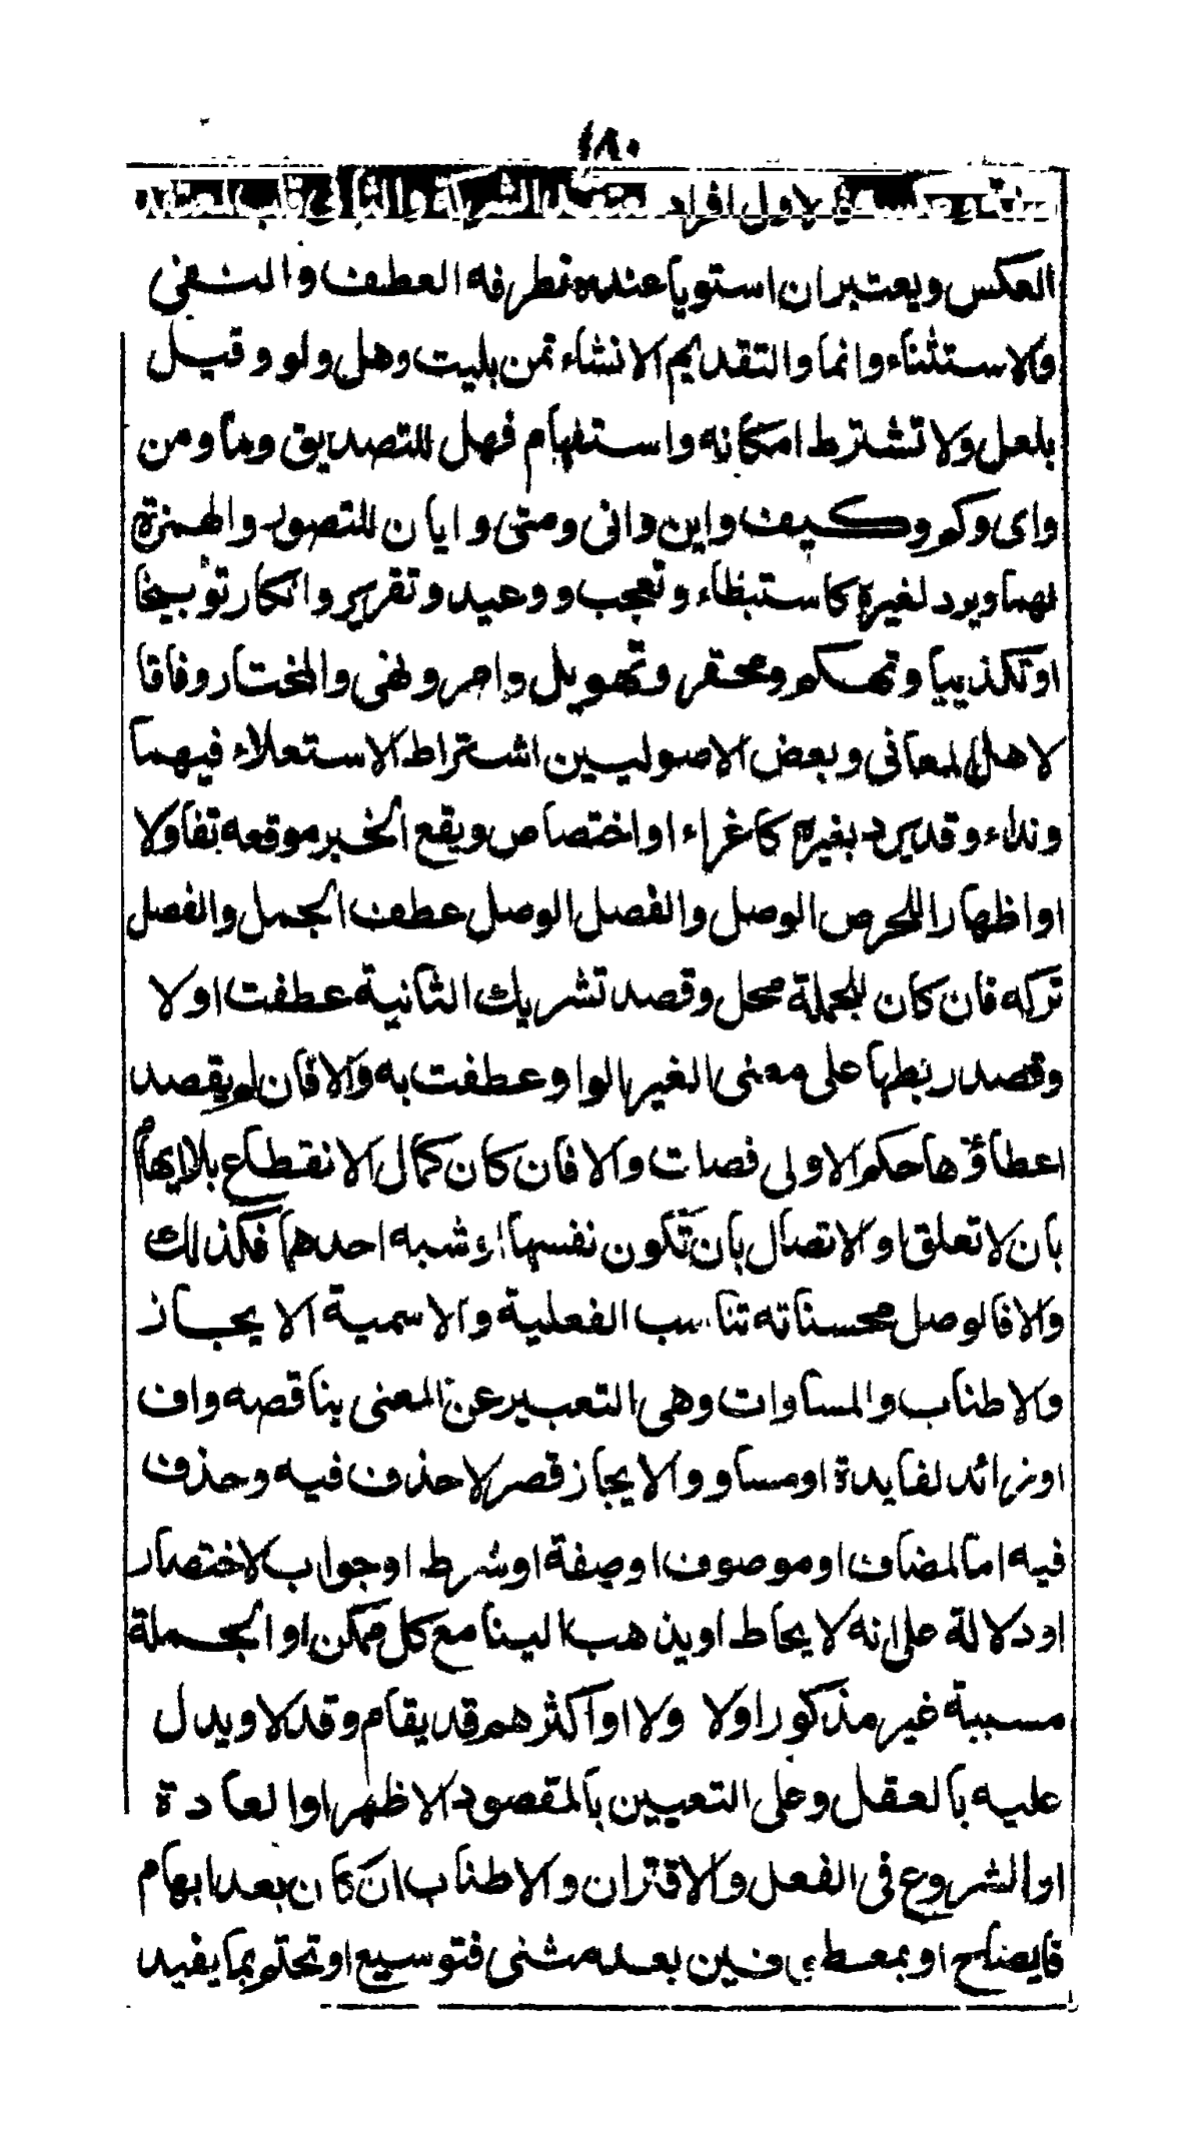 ١٨٠
صفة وعكسه فالاول افراد لمعتقد الشركة والثاني قلب لمعتقد
العكس ويعتبر ان استويا عنده وطرفه العطف والنفى
والاستثناء وانما والتقديم الانشاء تمن بليت وهل ولو وقيل
بلعل ولا تشترط امكانه واستفهام فهل للتصديق وما ومن
واى وكم وكيف واين وانى ومتى وايان للتصور والهمزة
لهما ويرد لغيره كاستبطاء وتعجب ووعيد وتقرير وانكار توبيخا
اوتكذيبا وتهكم وتحقر وتهويل وامر ونهى والمختار وفاقا
لاهل المعانى وبعض الاصوليين اشتراط الاستعلاء فيهما
ونداء وقد يرد بغيره كاغراء او اختصاص ويقع الخبر موقعه تفاولا
او اظهارا للحرص الوصل والفصل الوصل عطف الجمل والفصل
تركه فان كان للجملة محل وقصد تشريك الثانية عطفت اولا
وقصد ربطها على معنى الغير بالواو عطفت به والا فان لم يقصد
اعطاؤها حكم الاولى فصلت والا فان كان كمال الانقطاع بلا ايهام
بان لا تعلق او لاتصال بان تكون نفسها او شبه احدهما فكذلك
والا فالوصل محسناته تناسب الفعلية والاسمية الايجاز
والاطناب والمساوات وهى التعبير عن المعنى بناقصه واف
او زائد لفايدة او مساو والايجاز قصر لاحذف فيه وحذف
فيه اما لمضاف او موصوف او صفة او شرط او جواب لاختصار
او دلالة على انه لا يحاط او يذهب الينا مع كل ممكن او الجملة
مسببة غير مذكور اولا ولا او اكثرهم قد يقام وقد لا ويدل
عليه بالعقل وعلى التعيين بالمقصود الاظهر او العادة
او الشروع فى الفعل والاقتران والاطناب ان كان بعد ابهام
فايضاح او بمعطوفين بعده مثنى فتوسيع او تختم بما يفيد